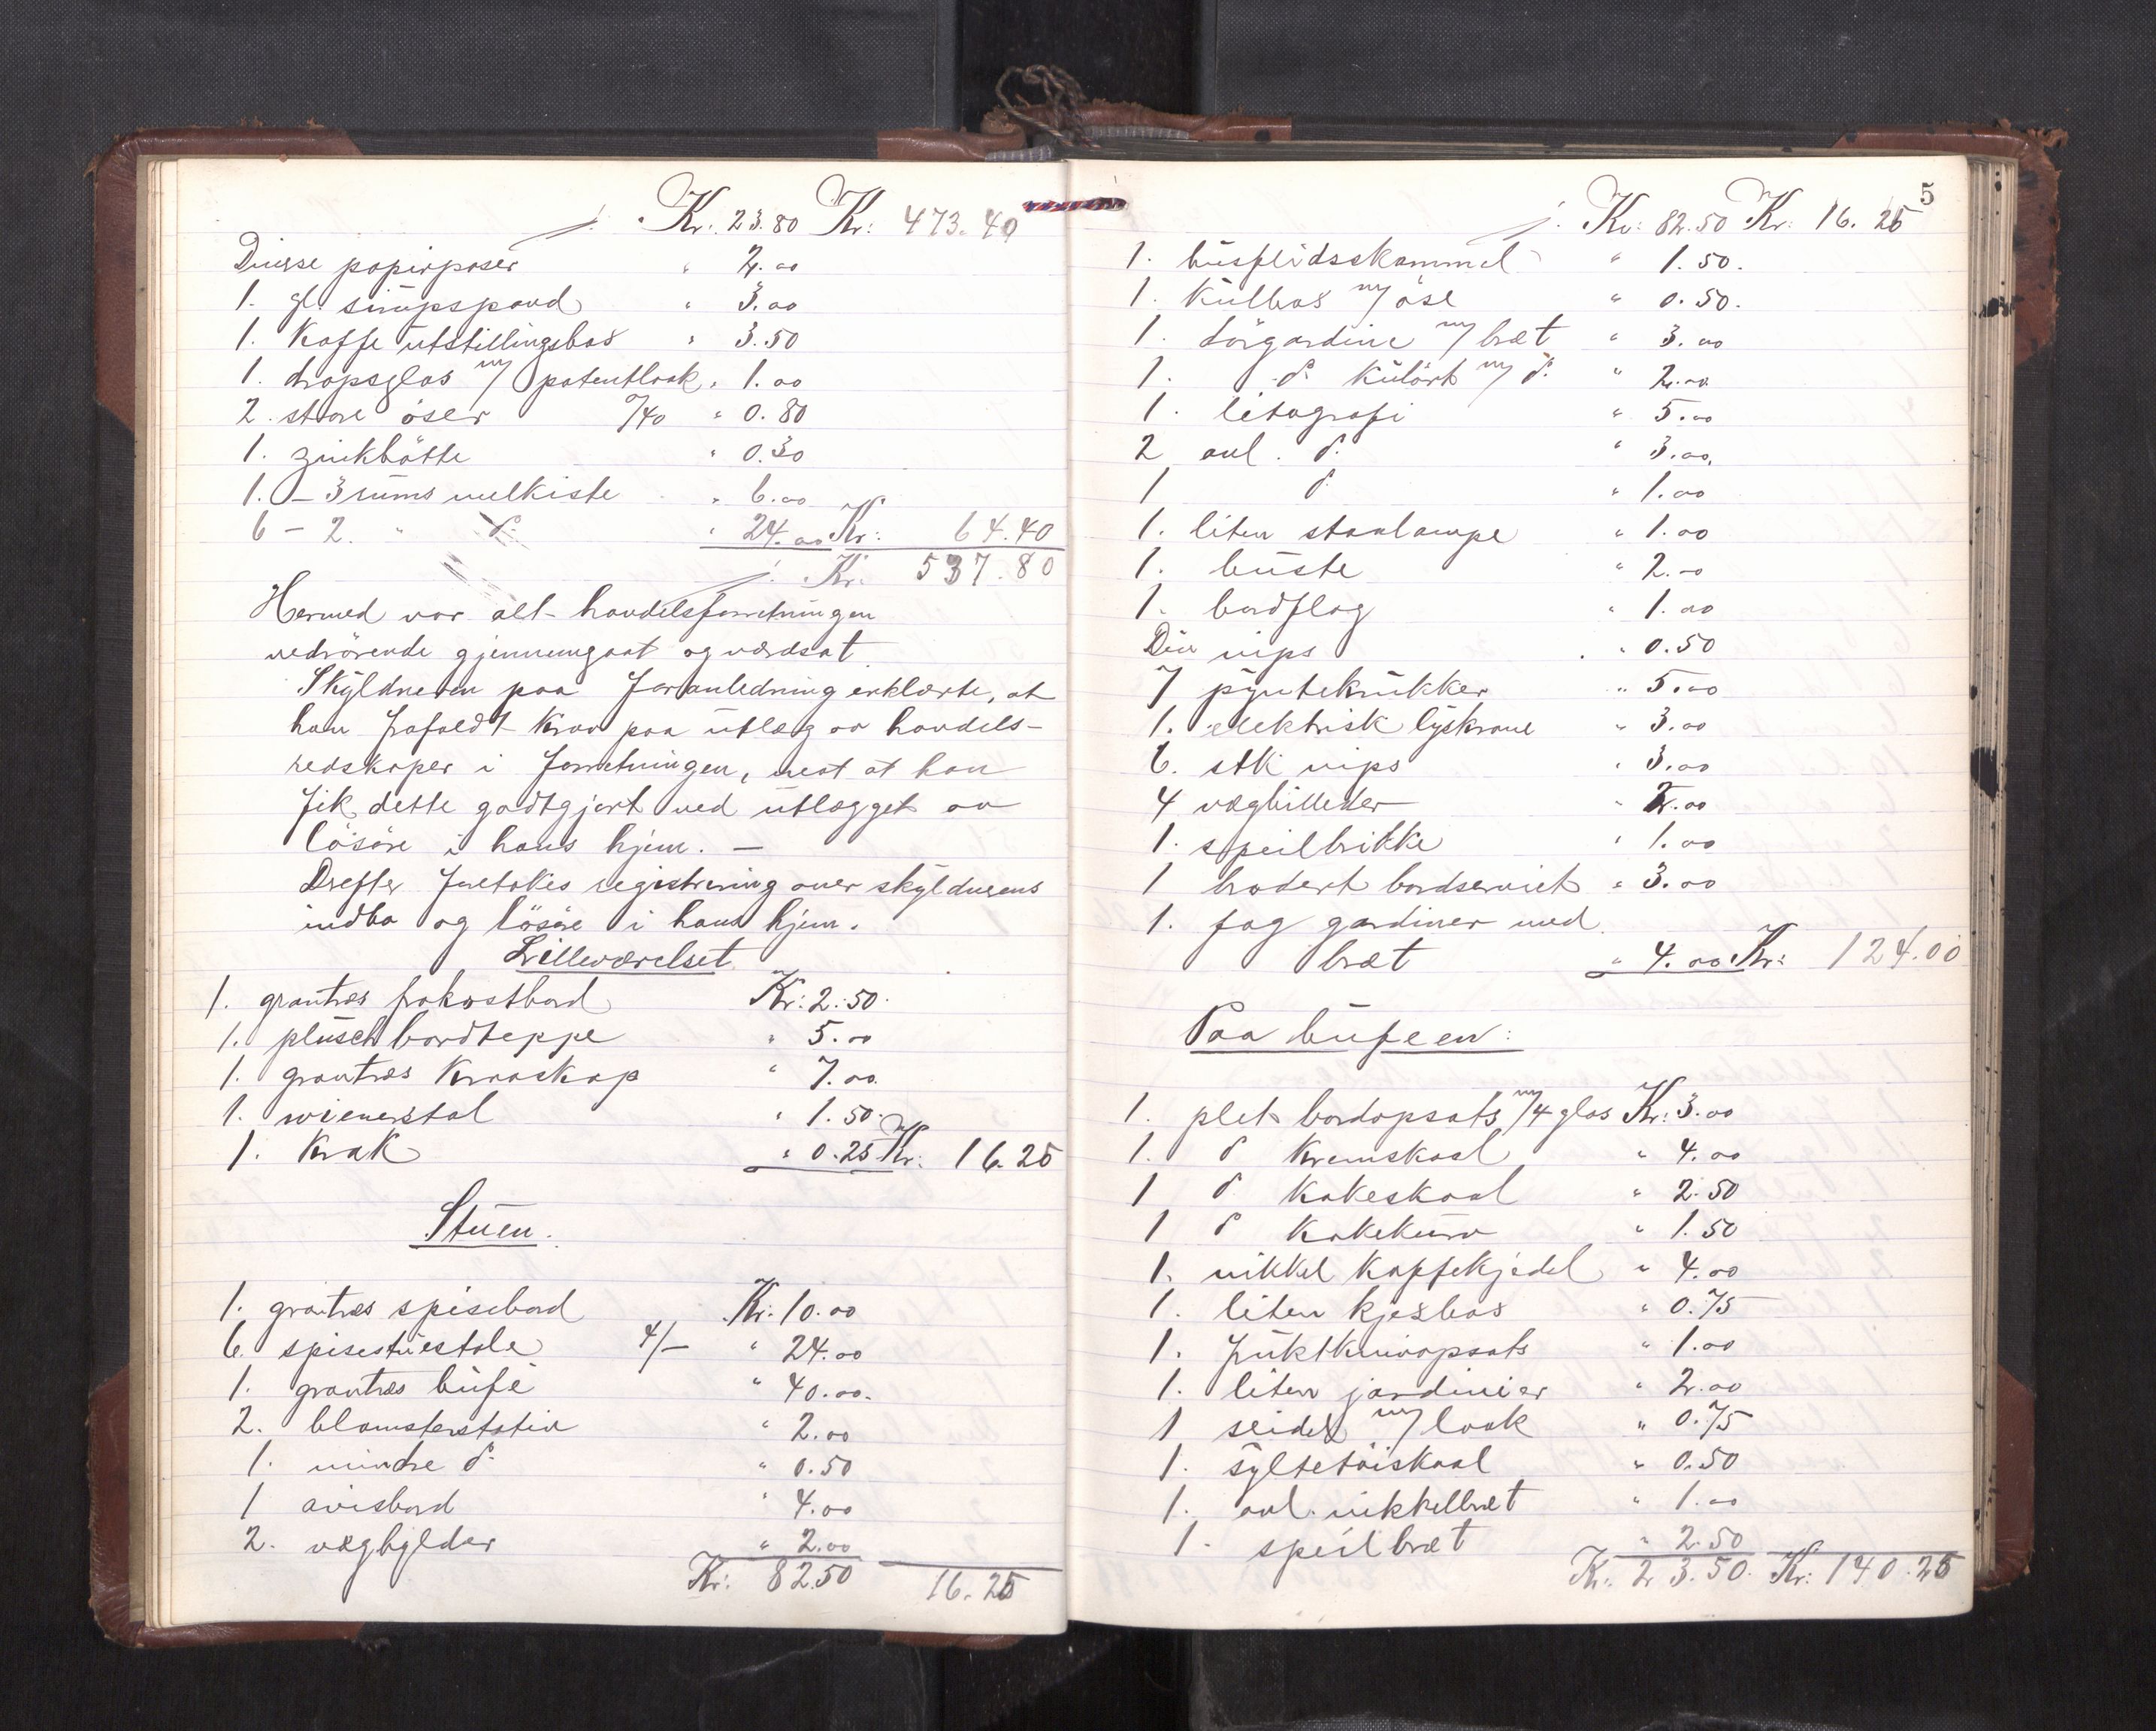 Kr. 23.80 Kr: 473.40
Diverse papirposer " 2.00
1. gl. sirupspand " 3.00
1. Kaffe utstillingsbos " 3.50
1. dropsglas m/ patentlaak " 1.00
2. store öser /40 " 0.80
1. zinkbötte " 0.30
1. – 3 rums melkiste " 6.00
6 – 2. " d: " 24.00 Kr: 64.40
Kr. 537.80
Hermed var alt handelsforretningen
vedrörende gjennemgaat og værdsat.
Skyldneren paa foranledning erklærte, at
han frafaldt krav paa utlæg av handels-
redskaper i forretningen, mot at han
fik dette godtgjort ved utlægget av
lösöre i hans hjem. –
Drefter foretokes registrering over skyldnerens
indbo og lösöre i hans hjem.
Lilleværelset
1. grantræs frokostbord Kr: 2.50.
1. plüsch bordteppe " 5.00
1. grantræs kroaskap " 7.00.
1. wienerstol " 1.50.
1. krak " 0.25 Kr: 16.25
Stuen.
1. grantræs spisebord Kr. 10.00
6. spisestuestole 4/– " 24.00
1. grantræs büfe " 40.00.
2. blomsterstativ " 2.00
1. mindre d: " 0.50
1 avisbord " 4.00
2. væghylder " 2.00
Kr: 82.50 16.25
5
Kr: 82.50 Kr: 16.25
1. husflidsskammel " 1.50.
1. kulbos m/ öse " 0.50.
1. dörgardine m/ bræt " 3.00
1. d: kulört m/ d: " 2.00
1. litografi " 5.00
2 avl. d: " 3.00.
1 d " 1.00
1. liten staalampe " 1.00
1. büste " 2.00
1. bordflag " 1.00
Div nips " 0.50
7 pyntekrukker " 5.00
1. elektrisk lyskrone " 3.00
6. stk nips " 3.00
4 vægbilleder " 2.00
1. speilbrikke " 1.00
1 brodert bordserviet " 3.00
1. fag gardiner med
bræt " 4.00 Kr: 124.00
Paa büfeen:
1. plet bordopsats m/4 glas Kr: 3.00
1. d kremskaal " 4.00
1 d kakeskaal " 2.50
1 d kakekurv " 1.50
1. nikkel kaffekjedel " 4.00
1. liten kjexbos " 0.75
1. fruktknivopsats " 1.00
1. liten jardinier " 2.00
1 seidel m/ laak " 0.75
1. syltetöiskaal " 0.50
1. avl. nikkelbræt " 1.00
1. speilbræt " 2.50
Kr. 23.50. Kr: 140.25